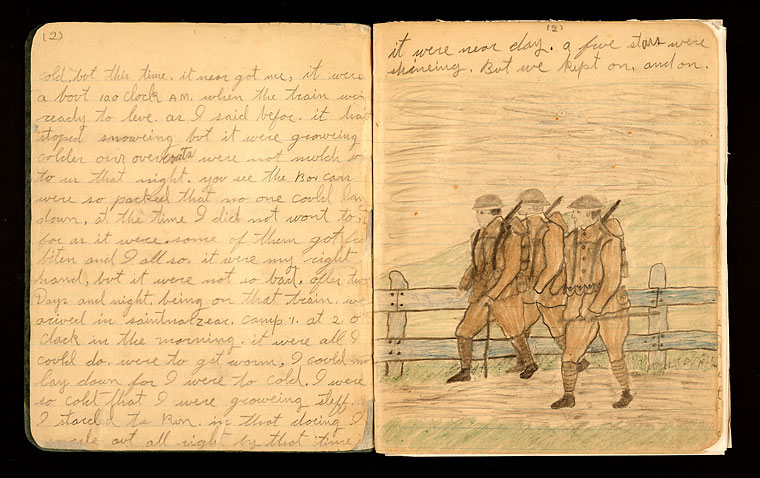 (2)
cold. but this time. it near got me, it were
a bout 1oo clock AM. when the train were
ready to leve. as I said befoe. it had
stoped snoweing but it were groweing
colder our overcoats were not mutch
to us that night. you see the Box cars
were so packed that no one could lay
down, at the time I did not wont to
for as it were. some of them got
biten and I all so. it were my right
hand, but it were not so bad. after two
Days and night. being on that train. we
arived in saintnazear. camp 1. at 2. o
clock in the morning. it were all I
could do. were to get worm, I could
lay down for I were to cold. I were
so cold that I were groweing steff,
I started to Run. in that doing I
out all right by that time
(2)
it were near day. a five stars were
shineing. But we kept on. and on.